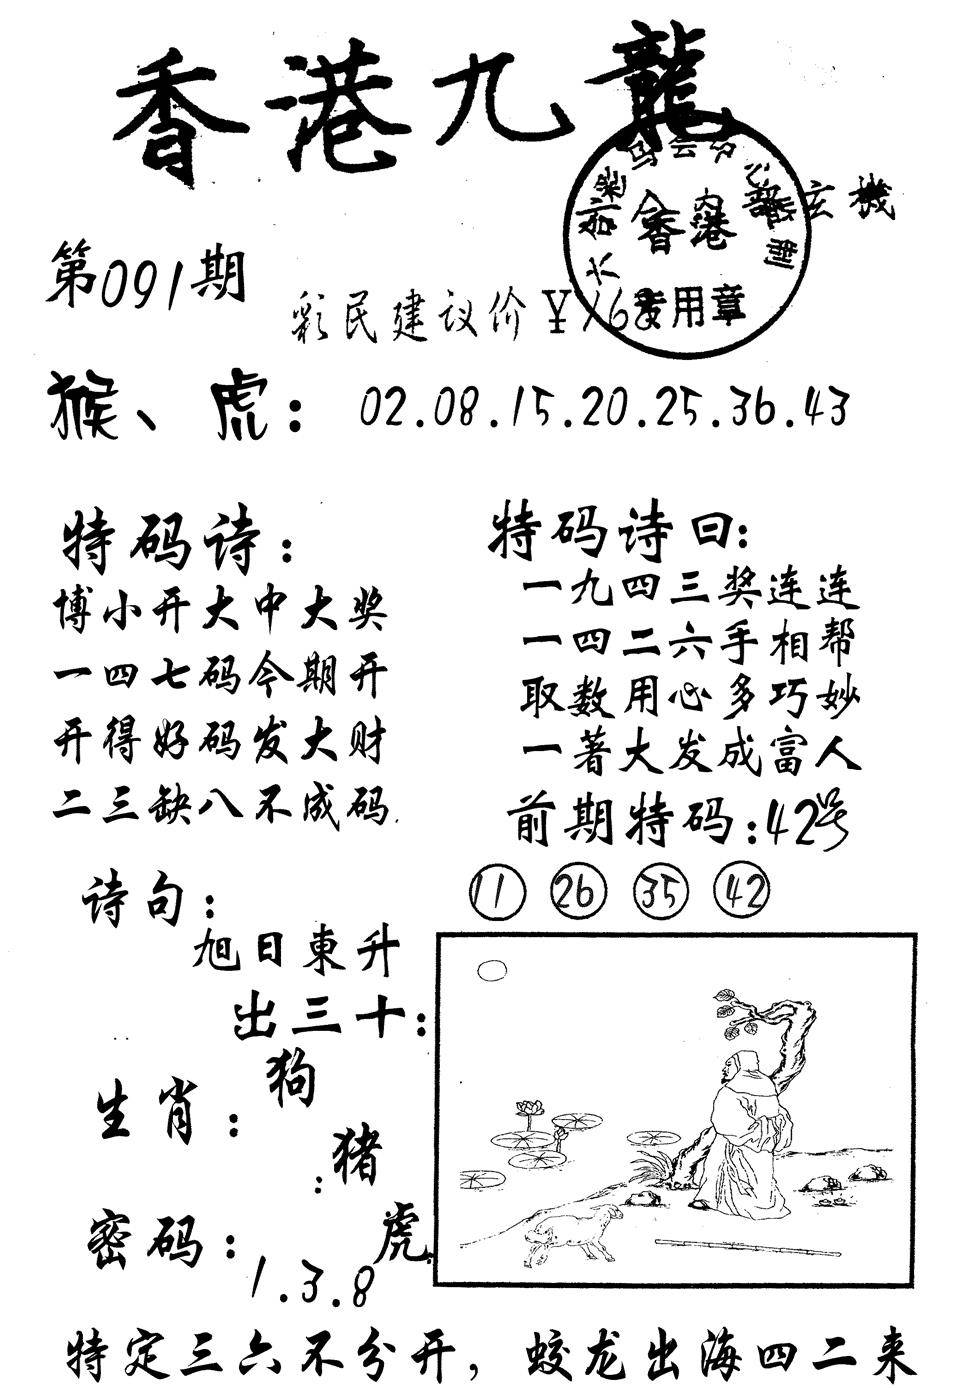 香港九龍
香港
玄機
专用章
第091期
彩民建议价¥168
猴、虎：02.08.15.20.25.36.43
特码诗：
博小开大中大奖
一四七码今期开
开得好码发大财
二三缺八不成码.
特码诗曰：
一九四三奖连连
一四二六手相帮
取数用心多巧妙
一著大发成富人
前期特码：42号
11 26 35 42
诗句：
旭日東升
出三十：
生肖：
狗
猪
虎
密码：
1.3.8
特定三六不分开，蛟龙出海四二来